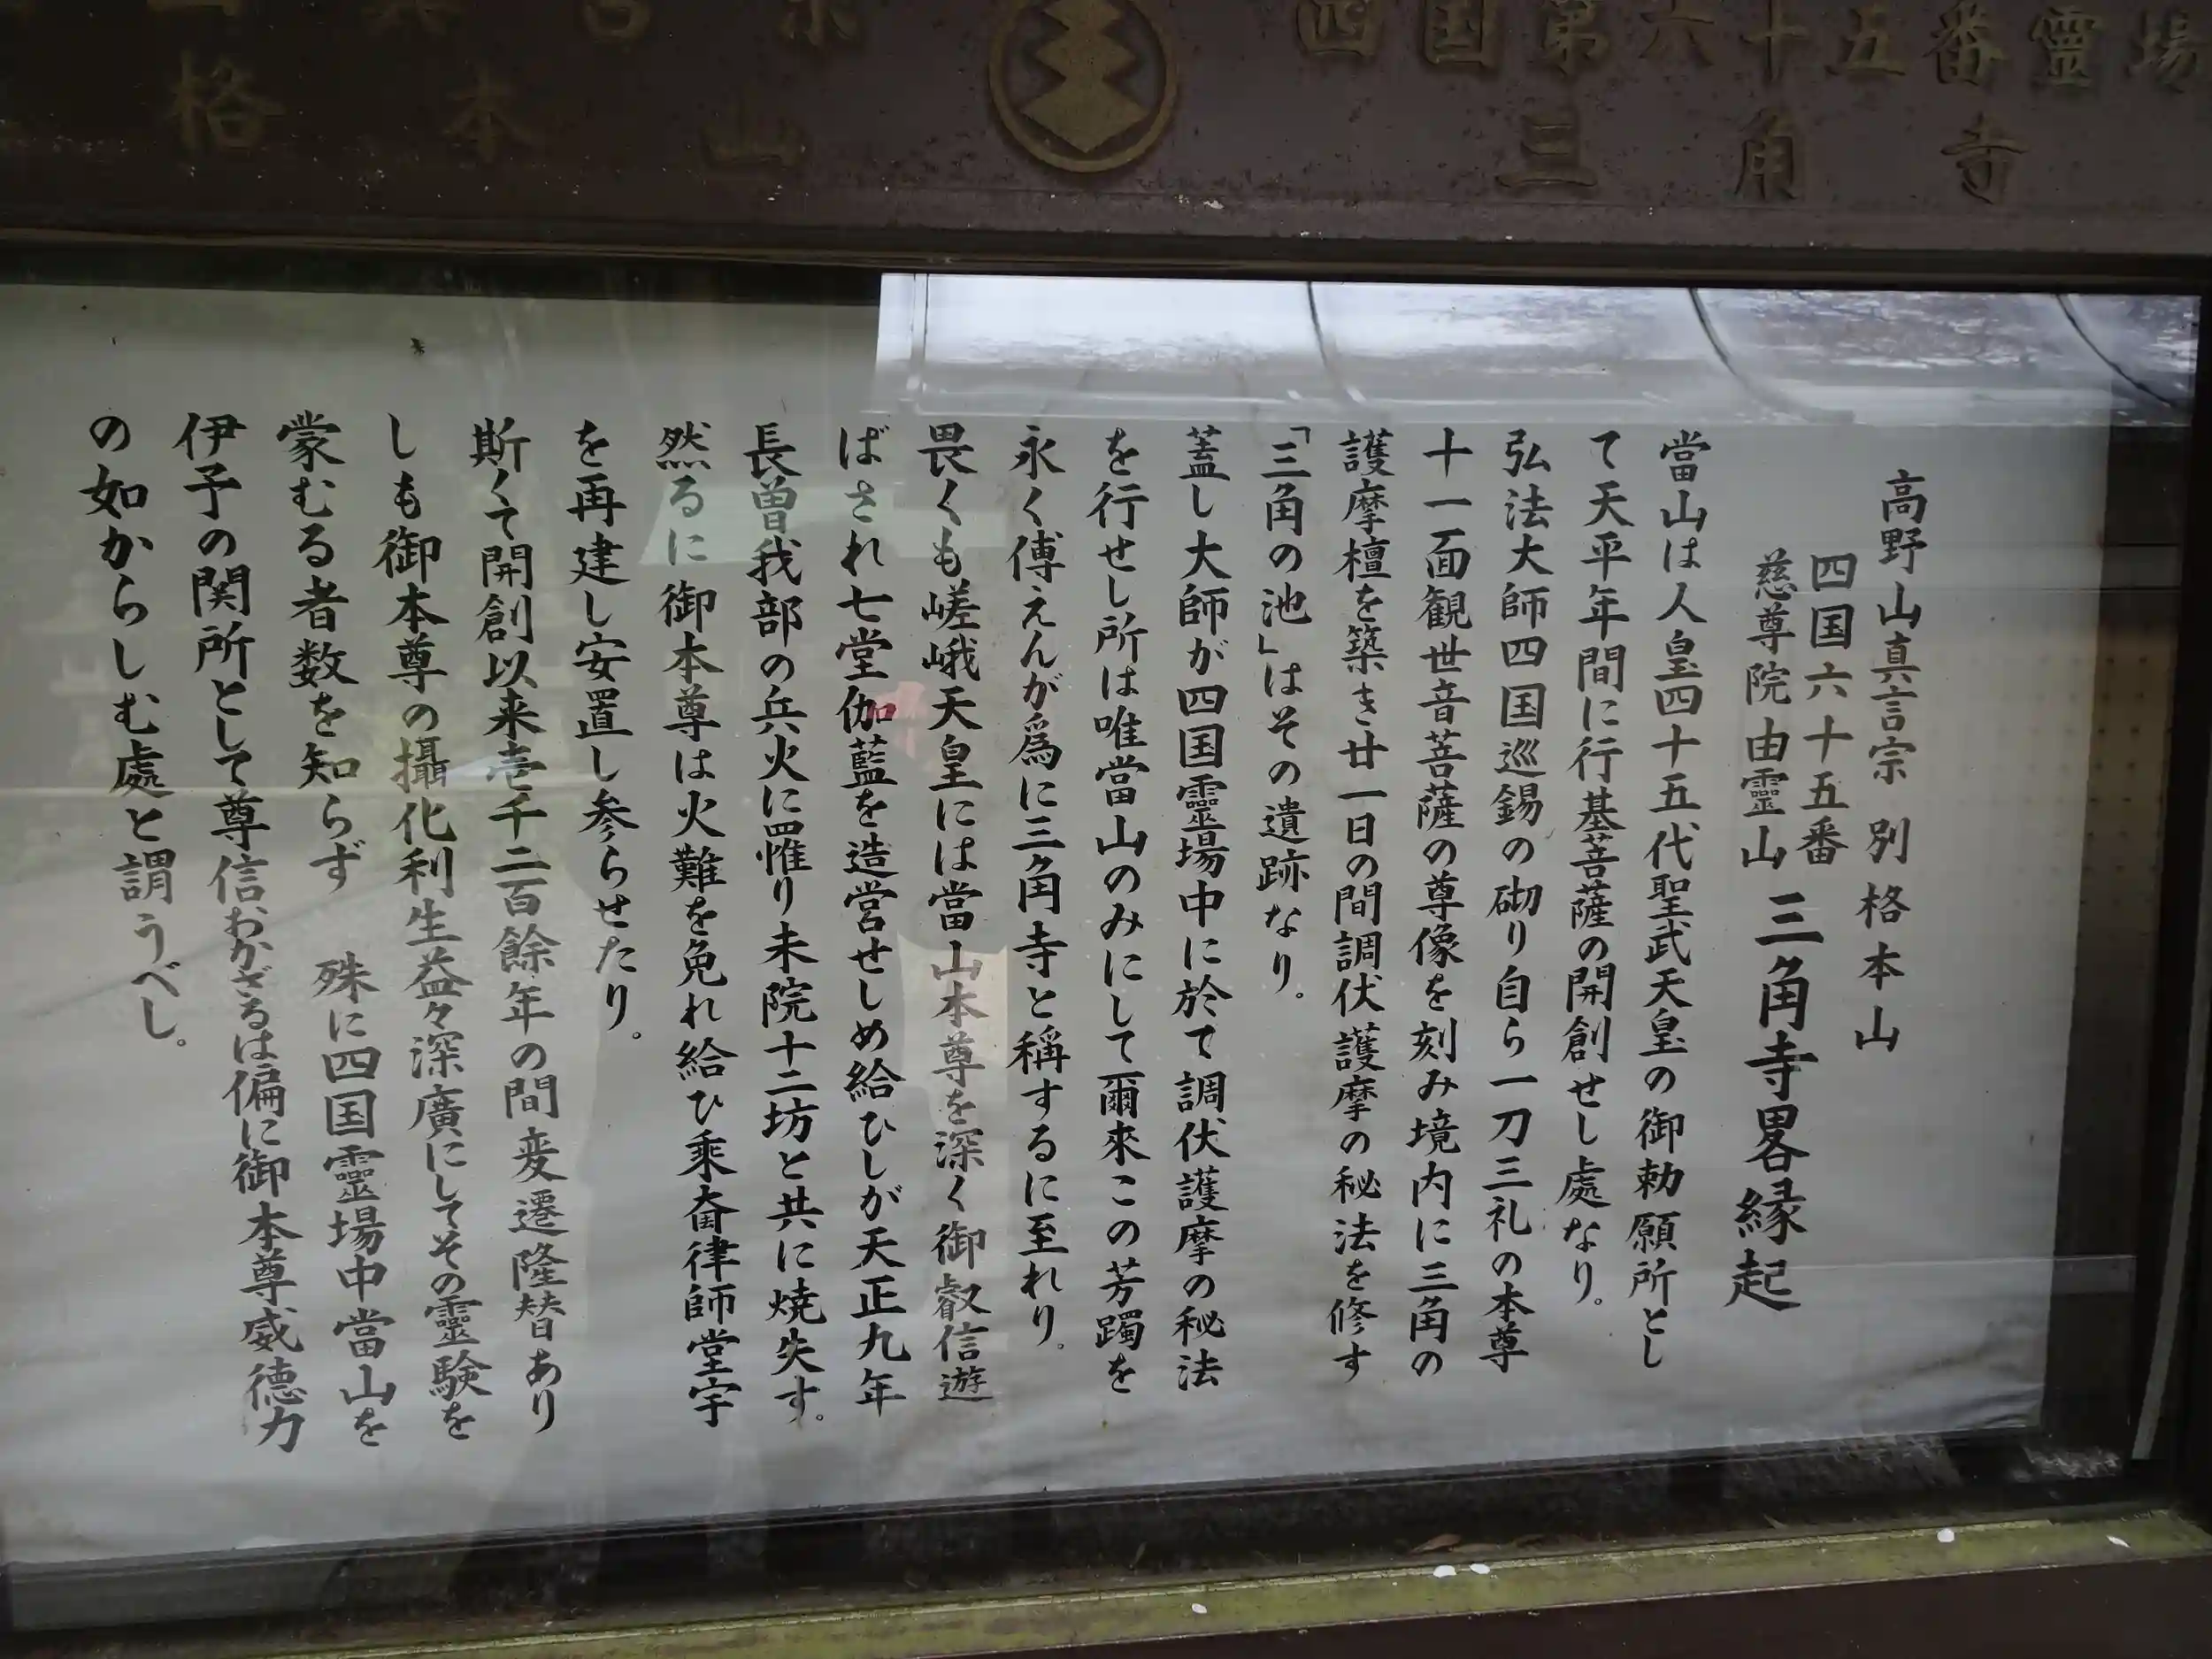 四国第六十五番靈場
三角寺
格本山
高野山真言宗 別格本山
四国六十五番
慈尊院由靈山 三角寺畧縁起
當山は人皇四十五代聖武天皇の御勅願所とし
て天平年間に行基菩薩の開創せし處なり。
弘法大師四国巡錫の砌り自ら一刀三礼の本尊
十一面観世音菩薩の尊像を刻み境内に三角の
護摩檀を築き廿一日の間調伏護摩の秘法を修す
「三角の池」はその遺跡なり。
蓋し大師が四国靈場中に於て調伏護摩の秘法
を行せし所は唯當山のみにして爾來この芳躅を
永く傳えんが爲に三角寺と稱するに至れり。
畏くも嵯峨天皇には當山本尊を深く御叡信遊
ばされ七堂伽藍を造営せしめ給ひしが天正九年
長曽我部の兵火に罹り未院十二坊と共に焼失す。
然るに御本尊は火難を免れ給ひ乗奝律師堂宇
を再建し安置し参らせたり。
斯くて開創以来壱千二百餘年の間変遷隆替あり
しも御本尊の攝化利生益々深廣にしてその靈験を
蒙むる者数を知らず 殊に四国靈場中當山を
伊予の関所として尊信おかざるは偏に御本尊威徳力
の如からしむ處と謂うべし。